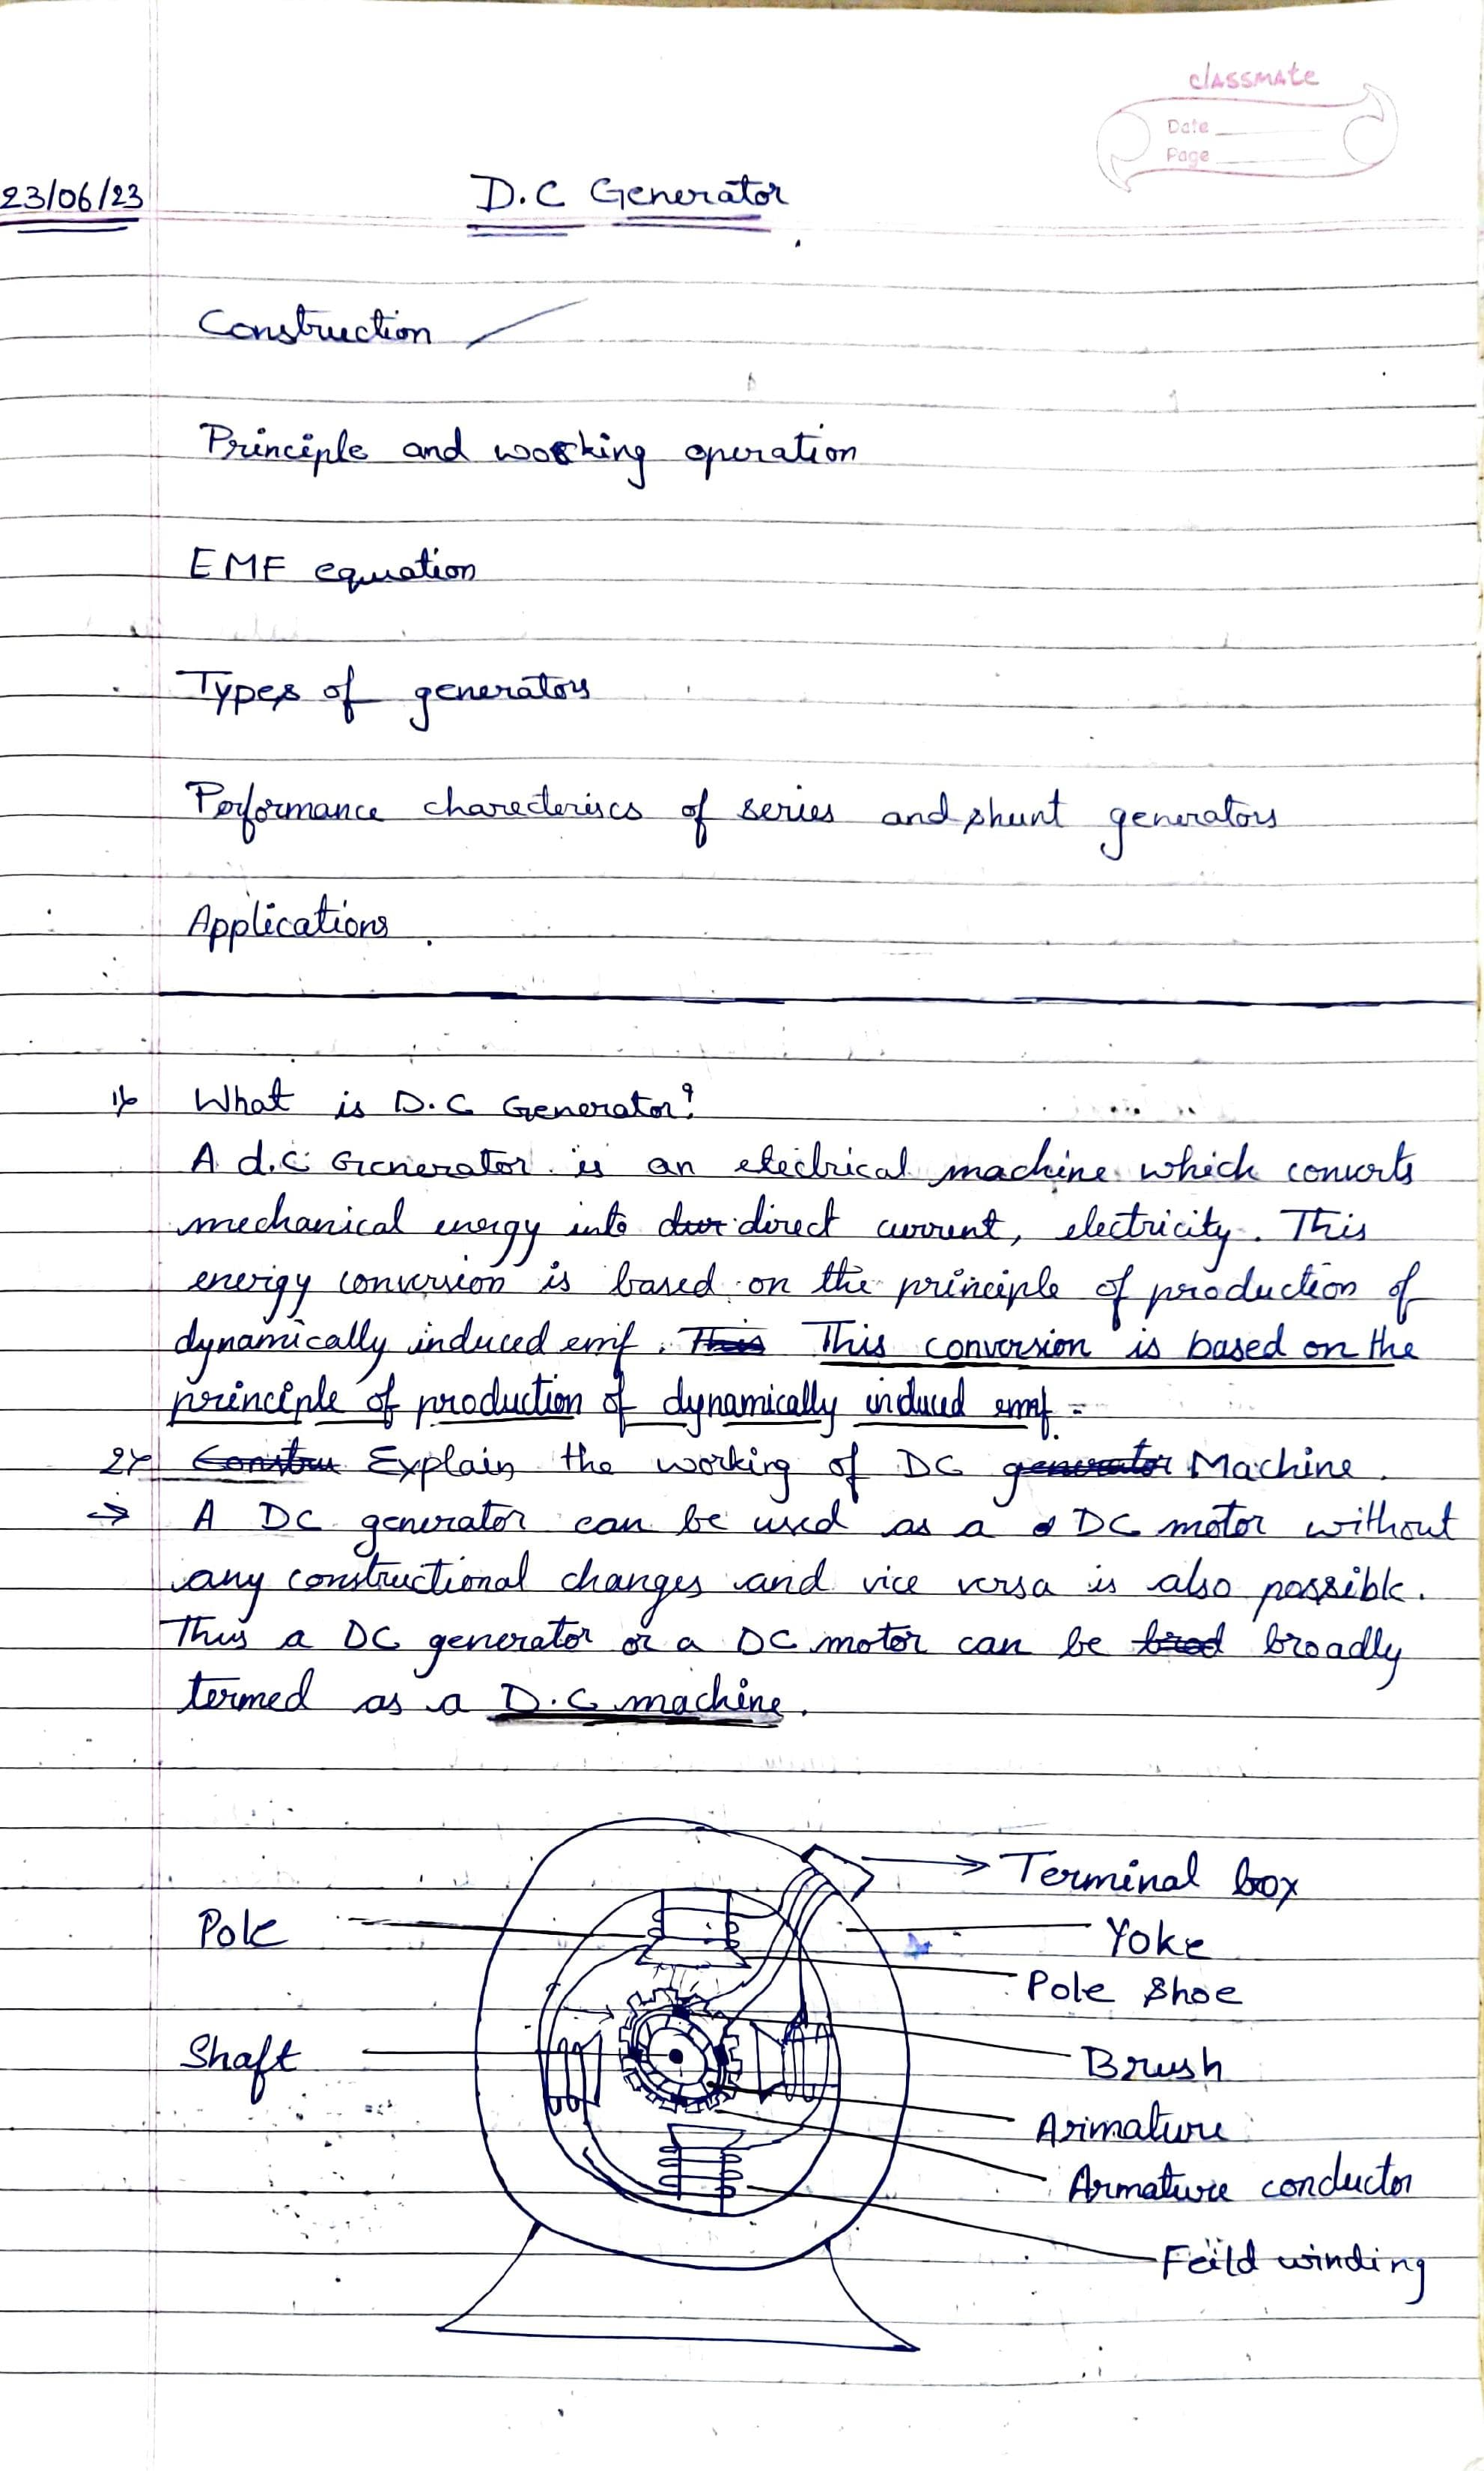 classmate
Date
Page
23/06/23
D.C Generator
Construction
Principle and working operation
EMF equation
Types of generators
Performance charecteriscs of series and shunt generators
Applications
1) What is D.C Generator?
A d.c. Generator is an electrical machine which converts
mechanical energy into dur direct current, electricity. This
energy conversion is based on the principle of production of
dynamically induced emf. This This conversion is based on the
principle of production of dynamically induced emf.
2) Constru Explain the working of DC generator Machine.
→ A DC generator can be used as a DC motor without
any constructional changes and vice versa is also possible.
Thus a DC generator or a DC motor can be brod broadly
termed as a D.C machine.
Terminal box
Pole
Yoke
Pole Shoe
Shaft
Brush
Armature
Armature conductor
Feild winding